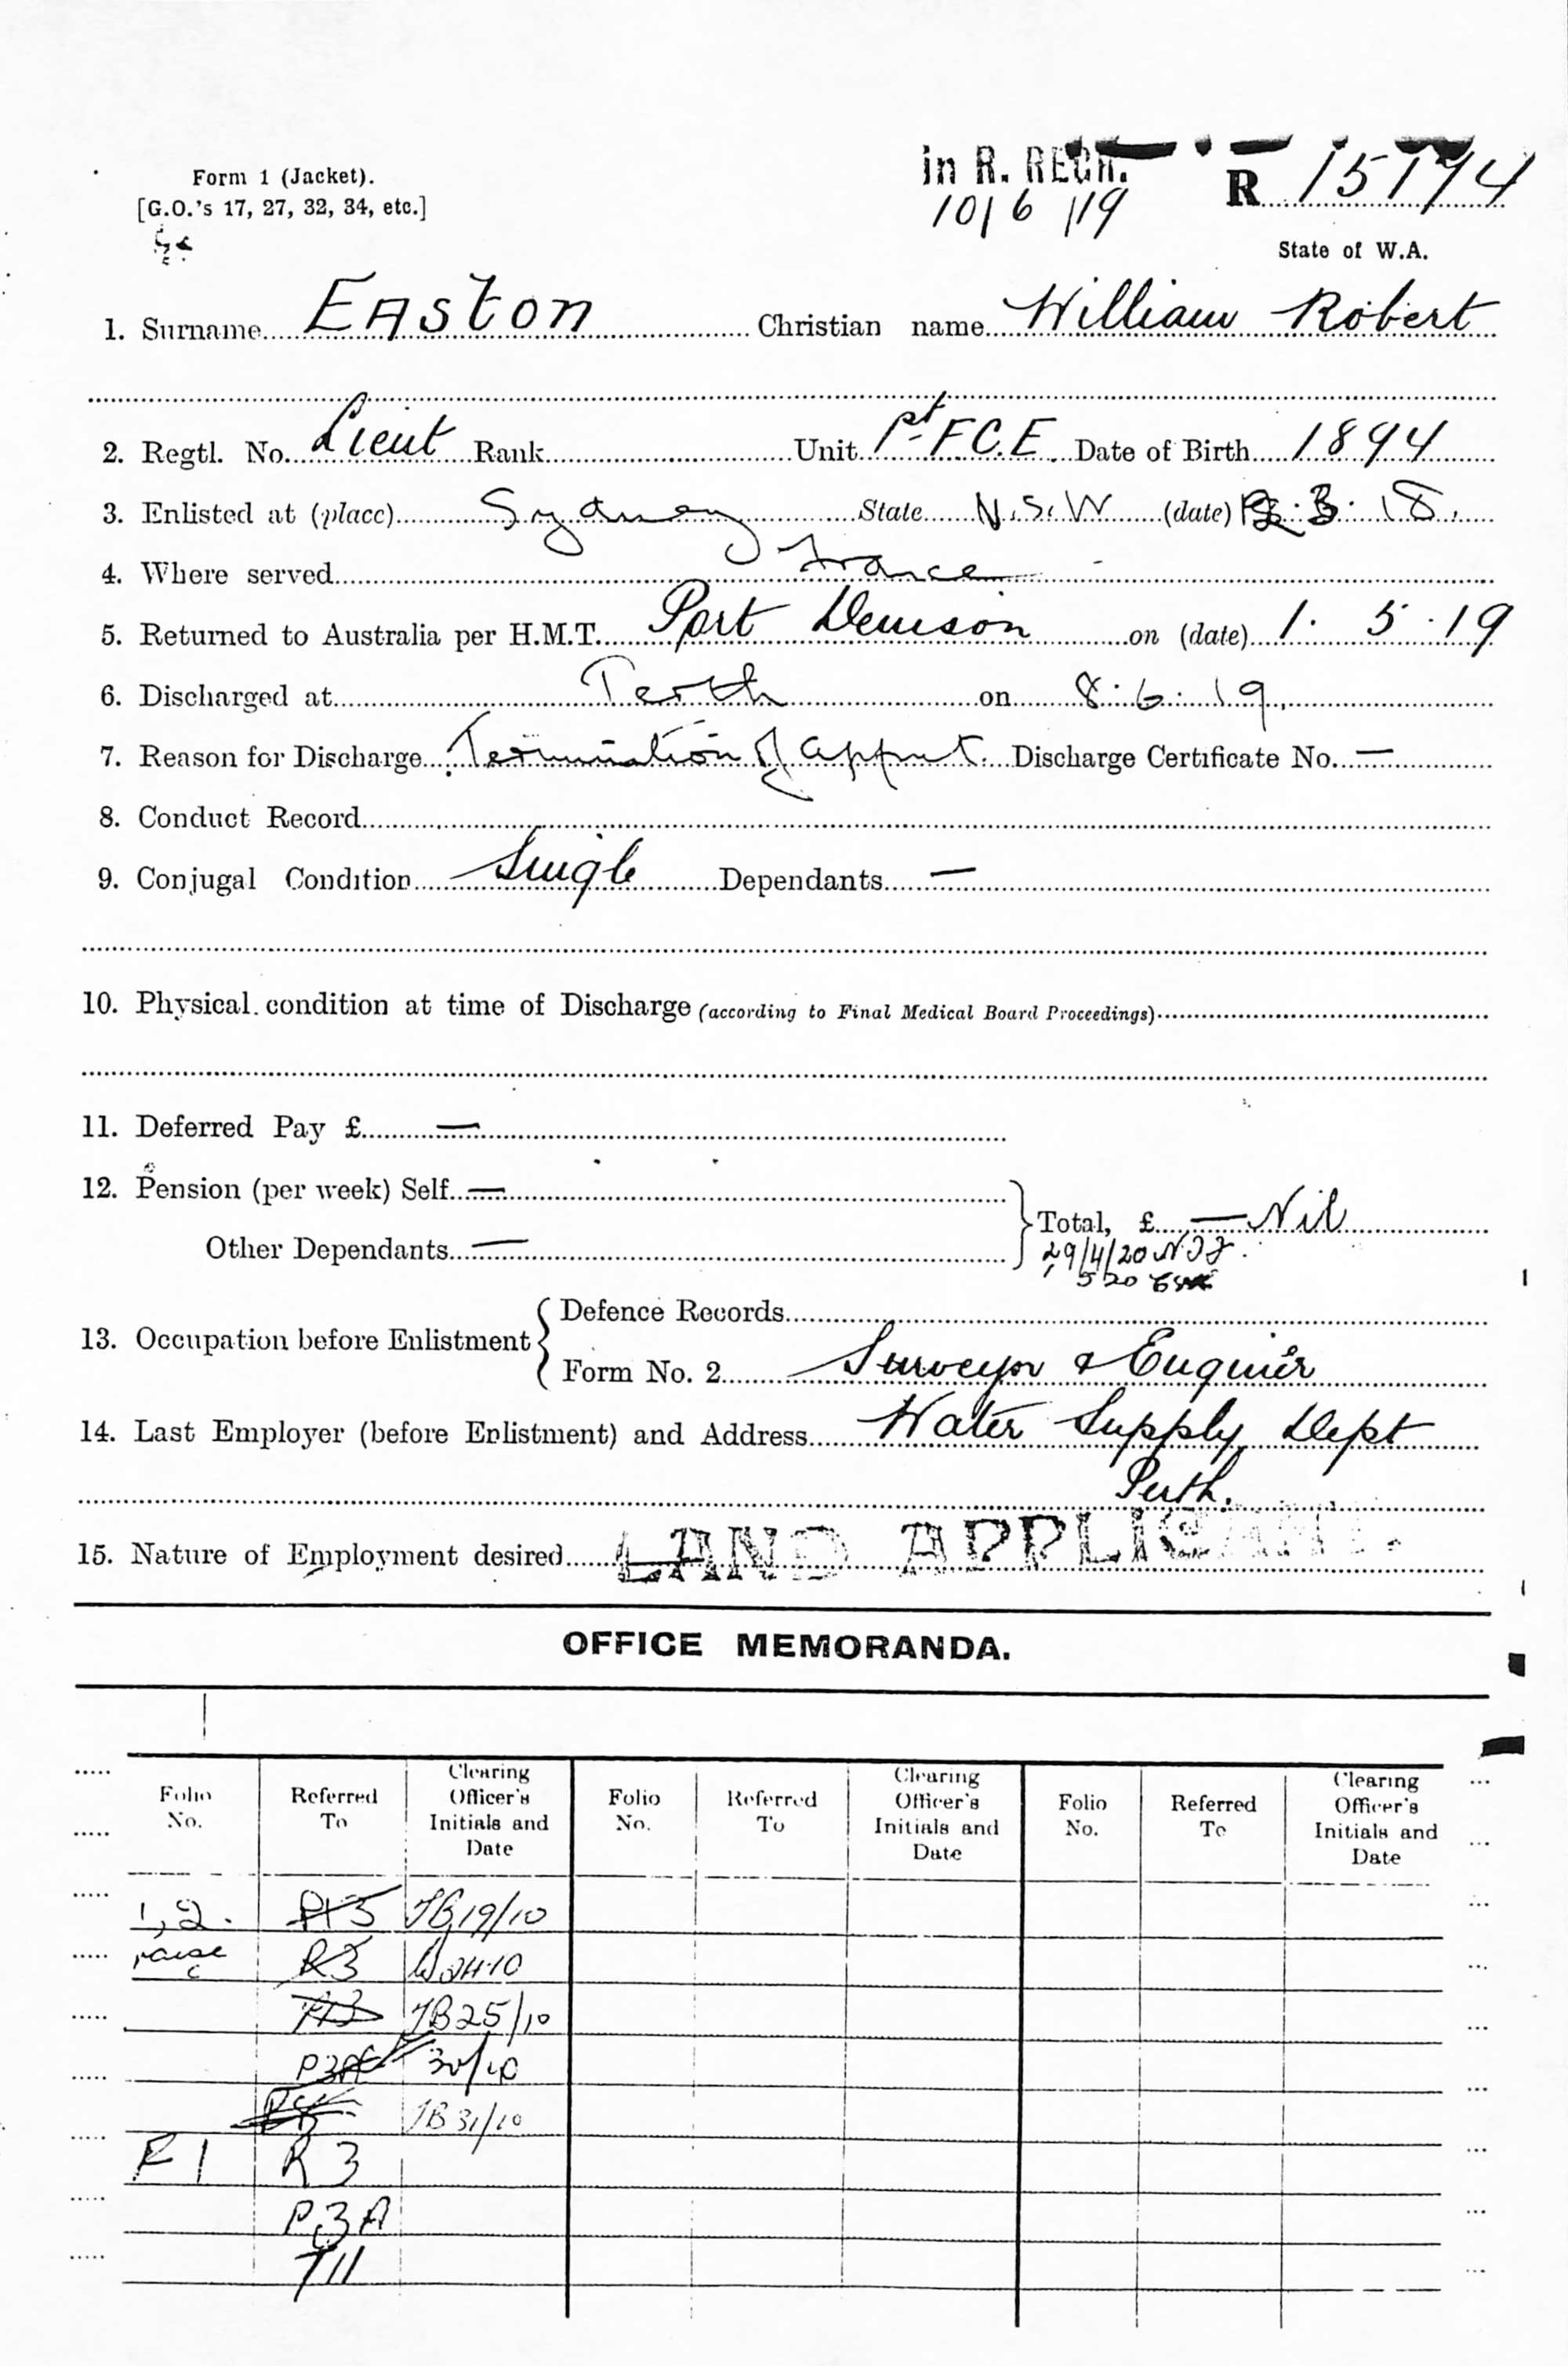 Form 1 (Jacket).
[G.O.'s 17, 27, 32, 34, etc.]
in R. RECH.
10/6/19
R 15194
State of W.A.
1. Surname EAston Christian name William Robert
2. Regtl. No. Lieut Rank Unit 1st F.C.E. Date of Birth 1894
3. Enlisted at (place) Sydney State N.S.W (date) 3.18.
4. Where served France
5. Returned to Australia per H.M.T. Port Denison on (date) 1.5.19
6. Discharged at Perth on 8.6.19.
7. Reason for Discharge Termination of appmt. Discharge Certificate No. —
8. Conduct Record
9. Conjugal Condition Single Dependants —
10. Physical condition at time of Discharge (according to Final Medical Board Proceedings)
11. Deferred Pay £ —
12. Pension (per week) Self —
Other Dependants —
Total, £ — Nil
29/4/20
5 20
13. Occupation before Enlistment
Defence Records
Form No. 2 Surveyor & Engineer
14. Last Employer (before Enlistment) and Address Water Supply Dept
Perth.
15. Nature of Employment desired LAND APPLICANT.
OFFICE MEMORANDA.
Folio No. Referred To Clearing Officer's Initials and Date Folio No. Referred To Clearing Officer's Initials and Date Folio No. Referred To Clearing Officer's Initials and Date
1,2. JB 19/10
raise R3 24.10
JB 25/10
30/10
JB 31/10
F1 R3
P3A
T11